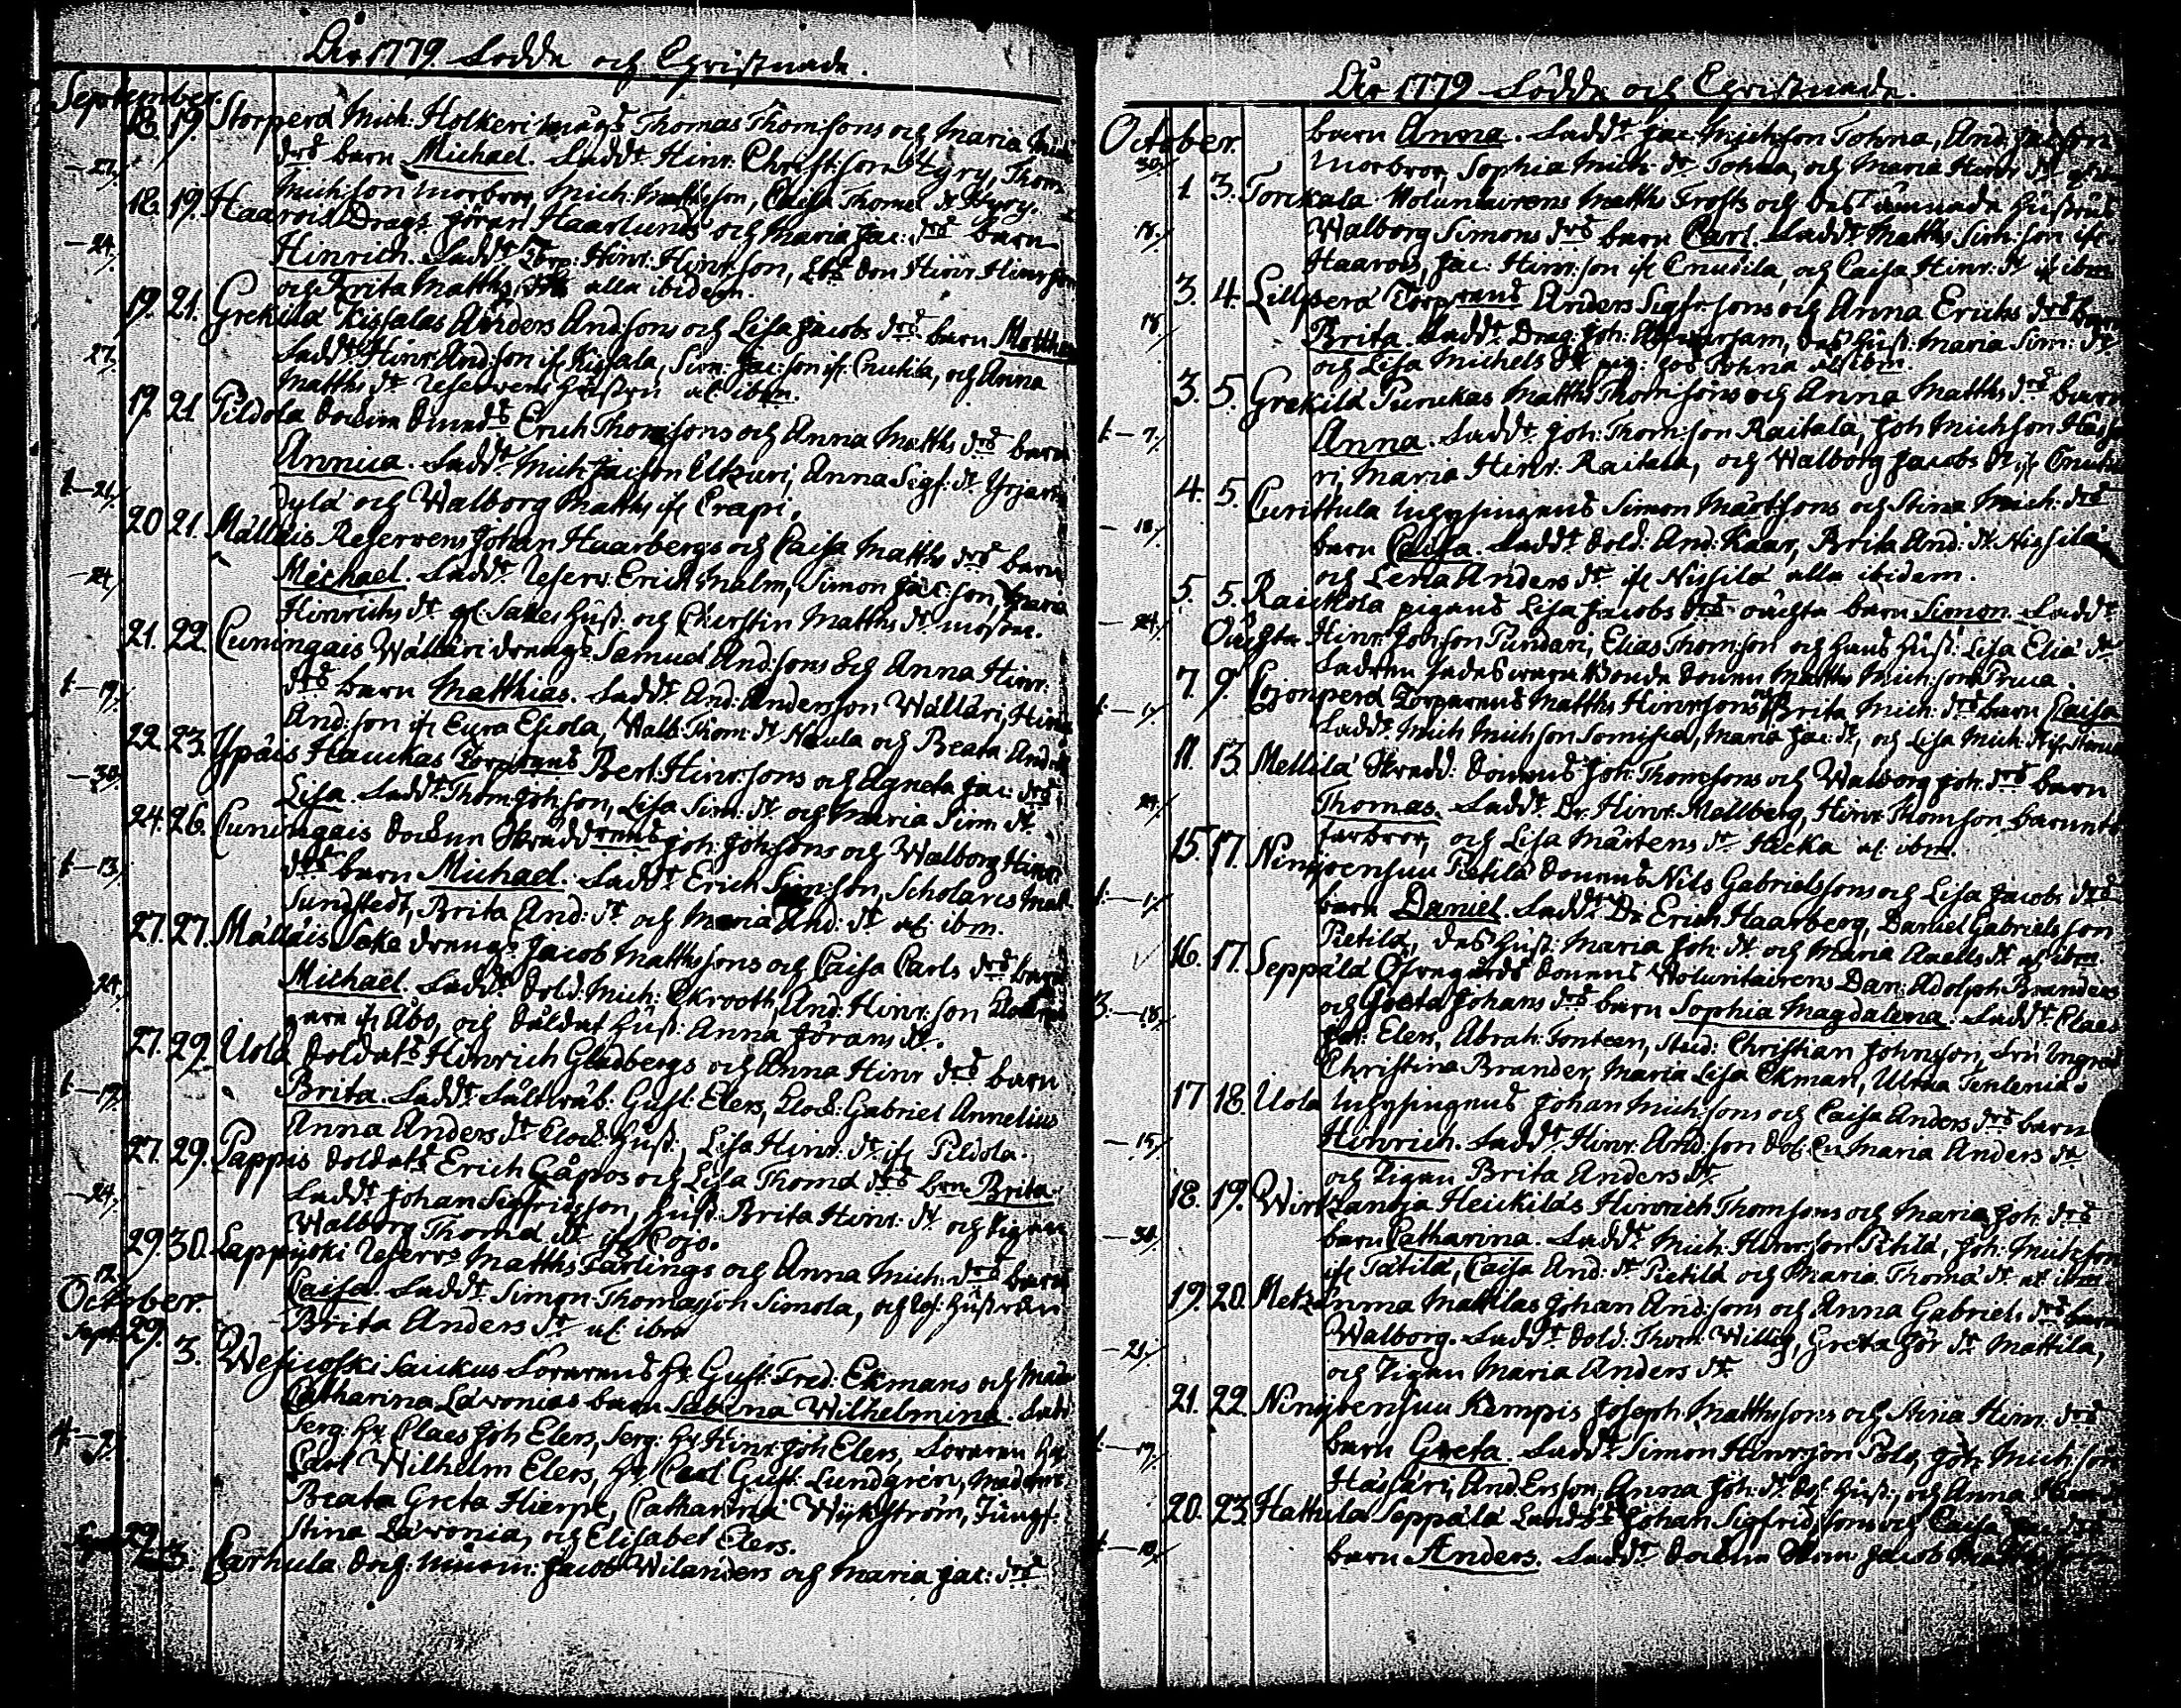 År 1779 Födde och Christnade.
September.
18. 19. Storperä Mich: Holkeri mågs Thomas Thomssons och Maria Mich:
drs barn Michael. Fadd:r Hinr: Christ:son Kyry, Thom:
— 27. Mich:son morbror, Mich: Matthsson, Caisa Thomæ dr Kyry.
18. 19. Haarois Drag: Jöran Haarlunds och Maria Jac: drs barn
— 24. Hinrich. Fadd:r Torp: Hinr: Hinr:son, Hinr: Hinr:son
och Brita Matths dr alla ibidem.
19. 21. Grekilä Kissalas Anders And:sons och Lisa Jacobs drs barn Matthias
27. Fadd:r Hinr: And:son ifr Kissala, Sim: Jac:son ifr Cnutila, och Anna
Matths dr Reservens hustru af ibm.
19. 21. Pildola Erich Thomssons och Anna Matths drs barn
Annica. Fadd:r Mich: Jacson Elkuri, Anna Sigf: dr
t — 21. dylä och Walborg Matths ifr Crapi.
20. 21. Mälläis Reservens Johan Haarbergs och Caisa Matths drs barn
— 24. Michael. Fadd:r Reserv: Erich Malm, Simon Jac:son, Maria
Hinrichs dr Sakes hust: och Cherstin Matths dr
21. 22. Cuningais Wälläri drengs Samuel And:sons och Anna Hinr:
t — 17. drs barn Matthias. Fadd:r And: Andersson Wälläri, Hinr:
And:son ifr Eura Esiola, Walb: Thom: dr Naula och Beata And: dr
22. 23. Ypäis Hauckas Torparens Bert: Hinr:sons och Agneta Jac: drs
— 30. Lisa. Fadd:r Thom: Joh:son, Lisa Sim: dr och Maria Sim: dr
24. 26. Cuningais Skräddrens Joh: Joh:sons och Walborg Hinr:
t — 13. drs barn Michael. Fadd:r Erich Sim:son, Scholaris Mat:
Sundstedt, Brita And: dr och Maria And: dr af ibm.
27. 27. Mälläis Sake drengs Jacob Matthssons och Caisa Carls drs barn
24. Michael. Fadd:r Sold: Mich: Ekrooth, And: Hinr:son
ifr Åbo, och Soldat hust: Anna Jörans dr.
27. 29. Uola Soldats Hinrich Gladbergs och Anna Hinr: drs barn
t — 17. Brita. Fadd:r Gust: Elers, Klock: Gabriel Annelius
Anna Anders dr Klock: hust:, Lisa Hinr: dr ifr Pildola.
27. 29. Pappis Soldats Erich Gåpos och Lisa Thomæ drs brn Brita.
— 24. Fadd:r Johan Sigfridsson, hust: Brita Hinr: dr och Pigan
Walborg Thomæ dr ifr Cojo.
29. 30. Lappijoki Reservs Matths Färlings och Anna Mich: drs barn
12. Caisa. Fadd:r Simon Thomasson Simola, och hustrun
October. Brita Anders dr af ibm
Sept: 29. 3. Wesijoski Lauckus Förarens Hr Gust: Fred: Ekmans och Mad:
Catharina Lavonias barn Sabina Wilhelmina. Fadd:
t — 9. Serg: Hr Claes Joh: Elers, Serg: Hr Hinr: Joh: Elers, Föraren Hr
Carl Wilhelm Elers, Hr Carl Gust: Lundgren, Mad:
Beata Greta Hierpe, Catharina Wykström, Jungf:
Stina Lavonia, och Elisabet Elers.
Sept: 29. 3. Carhula Jacob Wilanders och Maria Jac: drs
År 1779 Födde och Christnade.
October.
barn Anna. Fadd:r Jac: Michson Tohna, And: Jacson
30. morbror, Sophia Mich: dr Tohna, och Maria Hinr: dr
1. 3. Torckala Voluntairens Matths Trofts och dess ämnade hustrus
18. Walborg Simons drs barn Carl. Fadd:r Matths Sim:son ifr
Haarois, Jac: Hinr:son ifr Cnutila, och Caisa Hinr: dr af ibm
3. 4. Lillperä Torparens Anders Sigfr:sons och Anna Erichs drs barn
18. Brita. Fadd:r Drag: Joh: dess hust: Maria Sim: dr
och Lisa Michels dr pig: hos Tohna af ibm.
3. 5. Grekilä Punckas Matths Thom:sons och Anna Matths drs barn
t — 7. Anna. Fadd:r Joh: Thom:son Raitala, Joh: Michson
ri, Maria Hinr: Raitala, och Walborg Jacobs dr ifr
4. 5. Curittula Inhysingens Simon Märt:sons och Stina Mich: drs
— 18. barn Caisa. Fadd:r Sold: And: Kaar, Brita And: dr Nissilä
och Lena Anders dr ifr Nissilä alla ibidem.
5. 5. Raickola pigans Lisa Jacobs drs oächta barn Simon. Fadd:r
— 24. Oächta Hinr: Joh:son Pundari, Elias Thom:son och hans hust: Lisa Eliæ dr
Fadren sades wara Bonde Sonen Matths Mich:son Prua.
7. 9. Cojonperä Torparens Matths Hinr:sons och Brita Mich: drs barn Caisa
t — 17. Fadd:r Mich: Mich:son Somisia, Maria Jac: dr, och Lisa Mich: dr
11. 13. Mellilä Skradd: Sonens Joh: Thom:sons och Walborg Joh: drs barn
24. Thomas. Fadd:r Dr: Hinr: Mellberg, Hinr: Thomson barnets
farbror, och Lisa Mårtens dr Hacka af ibm.
15. 17. Ninijoensuu Pietilä Sonens Nils Gabrielssons och Lisa Jacobs drs
t — 17. barn Daniel. Fadd:r Dr: Erich Haarberg, Daniel Gabrielsson
Pietilä, dess hust: Maria Joh: dr och Maria Axells dr af ibm.
16. 17. Seppälä Öfvergårds Sonens Voluntairens Dan: Adolph Branders
3. — 18. och Greta Johans drs barn Sophia Magdalena. Fadd:r Claes
Joh: Elers, Abrah: Tonteen, Stud: Christian Johnsson, Fru Ingred
Christina Brander, Maria Lisa Ekman, Ulrica Tenlenia.
17. 18. Uola Inhysingens Johan Mich:sons och Caisa Anders drs barn
— 15. Hinrich. Fadd:r Hinr: And:son Maria Anders dr
och Pigan Brita Anders dr
18. 19. Wirtzanoja Heickiläs Hinrich Thomsons och Maria Joh: drs
— 30. barn Catharina. Fadd:r Mich: Hinr:son Pitilä, Joh: Mich:son
ifr Tätilä, Caisa And: dr Pietilä och Maria Thomæ dr af ibm
19. 20. Metzänma Mattilas Johan And:sons och Anna Gabriel: drs barn
— 21. Walborg. Fadd:r Sold: Thom: Willig, Greta Jör: dr Mattila,
och Pigan Maria Anders dr
21. 22. Ninijoensuu Kämpis Joseph Matthssons och Stina Hinr: drs
t — 17. barn Greta. Fadd:r Simon Hinrsson Polo, Joh: Mich:son
Hassari, And: Ersson, Anna Joh: dr hust:, och Anna
20. 23. Hattula Seppälä Johan Sigfridssons och Caisa Jac: drs
t — 18. barn Anders. Fadd:r Jacob